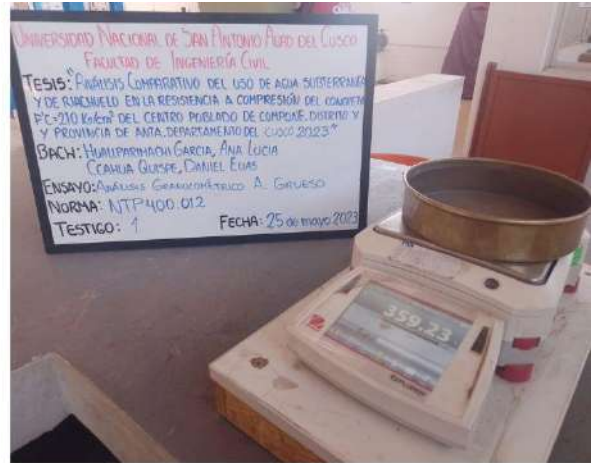 UNIVERSIDAD NACIONAL DE SAN ANTONIO ABAD DEL CUSCO
FACULTAD DE INGENIERÍA CIVIL
TESIS: "ANÁLISIS COMPARATIVO DEL USO DE AGUA SUBTERRANEA
Y DE RIACHUELO EN LA RESISTENCIA A COMPRESIÓN DEL CONCRETO
F'C=210 KG/CM² DEL CENTRO POBLADO DE COMPONE, DISTRITO Y
Y PROVINCIA DE ANTA, DEPARTAMENTO DEL CUSCO, 2023"
BACH: HUALLPARIMACHI GARCIA, ANA LUCIA
CCAHUA QUISPE, DANIEL ELIAS
ENSAYO: ANÁLISIS GRANULOMÉTRICO A. GRUESO
NORMA: NTP 400.012
TESTIGO: 1 FECHA: 25 de mayo 2023
359.23